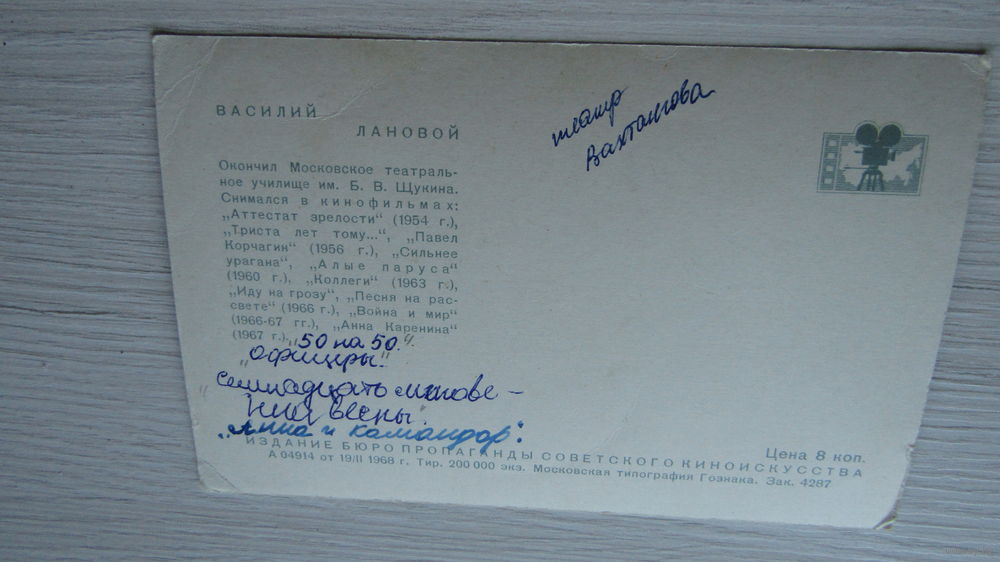 ВАСИЛИЙ
ЛАНОВОЙ
Окончил Московское театраль-
ное училище им. Б. В. Щукина.
Снимался в кинофильмах:
„Аттестат зрелости“ (1954 г.),
„Триста лет тому...“, „Павел
Корчагин“ (1956 г.), „Сильнее
урагана“, „Алые паруса“
(1960 г.), „Коллеги“ (1963 г.),
„Иду на грозу“, „Песня на рас-
свете“ (1966 г.), „Война и мир“
(1966-67 гг.), „Анна Каренина“
(1967 г.), „50 на 50“.
„Офицеры“
„Семнадцать мгнове-
ний весны“.
„Анна и командор“.
театр
Вахтангова
Цена 8 коп.
ИЗДАНИЕ БЮРО ПРОПАГАНДЫ СОВЕТСКОГО КИНОИСКУССТВА
А 04914 от 19/II 1968 г. Тир. 200 000 экз. Московская типография Гознака. Зак. 4287